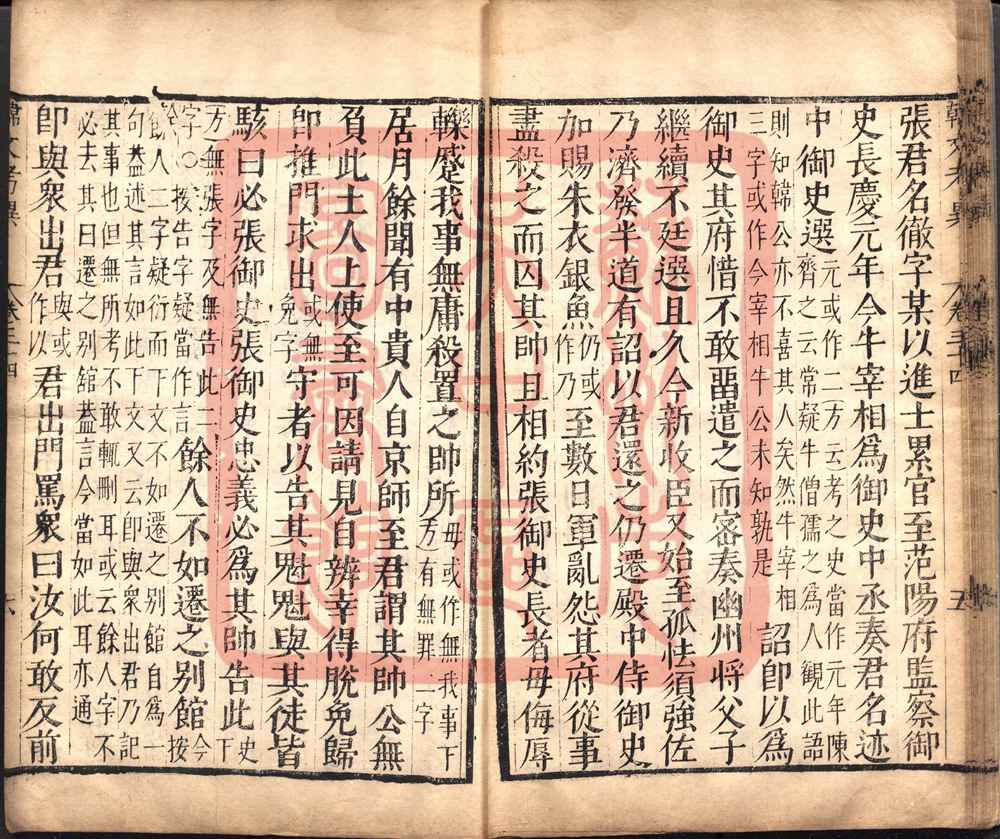 張君名徹字某以進士累官至范陽府監察御
史長慶元年今牛宰相爲御史中丞奏君名迹
中御史選元或作二方云考之史當作元年陳
齊之云常疑牛僧孺之爲人觀此語
則知韓公亦不喜其人矣然牛宰相
三字或作今宰相牛公未知孰是詔即以爲
御史其府惜不敢畱遣之而密奏幽州將父子
繼續不廷選且久今新收臣又始至孤怯須強佐
乃濟發半道有詔以君還之仍遷殿中侍御史
加賜朱衣銀魚仍或作乃至數日軍亂怨其府從事
盡殺之而囚其帥且相約張御史長者毋侮辱
轢蹙我事無庸殺置之帥所毋或作無我事下
方有無罪二字
居月餘聞有中貴人自京師至君謂其帥公無
負此土人上使至可因請見自辨幸得脫免歸
即推門求出或無免字守者以告其魁魁與其徒皆
駭曰必張御史張御史忠義必爲其帥告此史下
方無張字及無告此二
字○按告字疑當作言餘人不如遷之別館今按
餘人二字疑衍而下文不如遷之別館自爲一
句蓋述其言如此下文又云即與衆出君乃記
其事也但無所考不敢輒刪耳或云餘人字不
必去其曰遷之別館蓋言今當如此耳亦通
即與衆出君與或作以君出門罵衆曰汝何敢反前